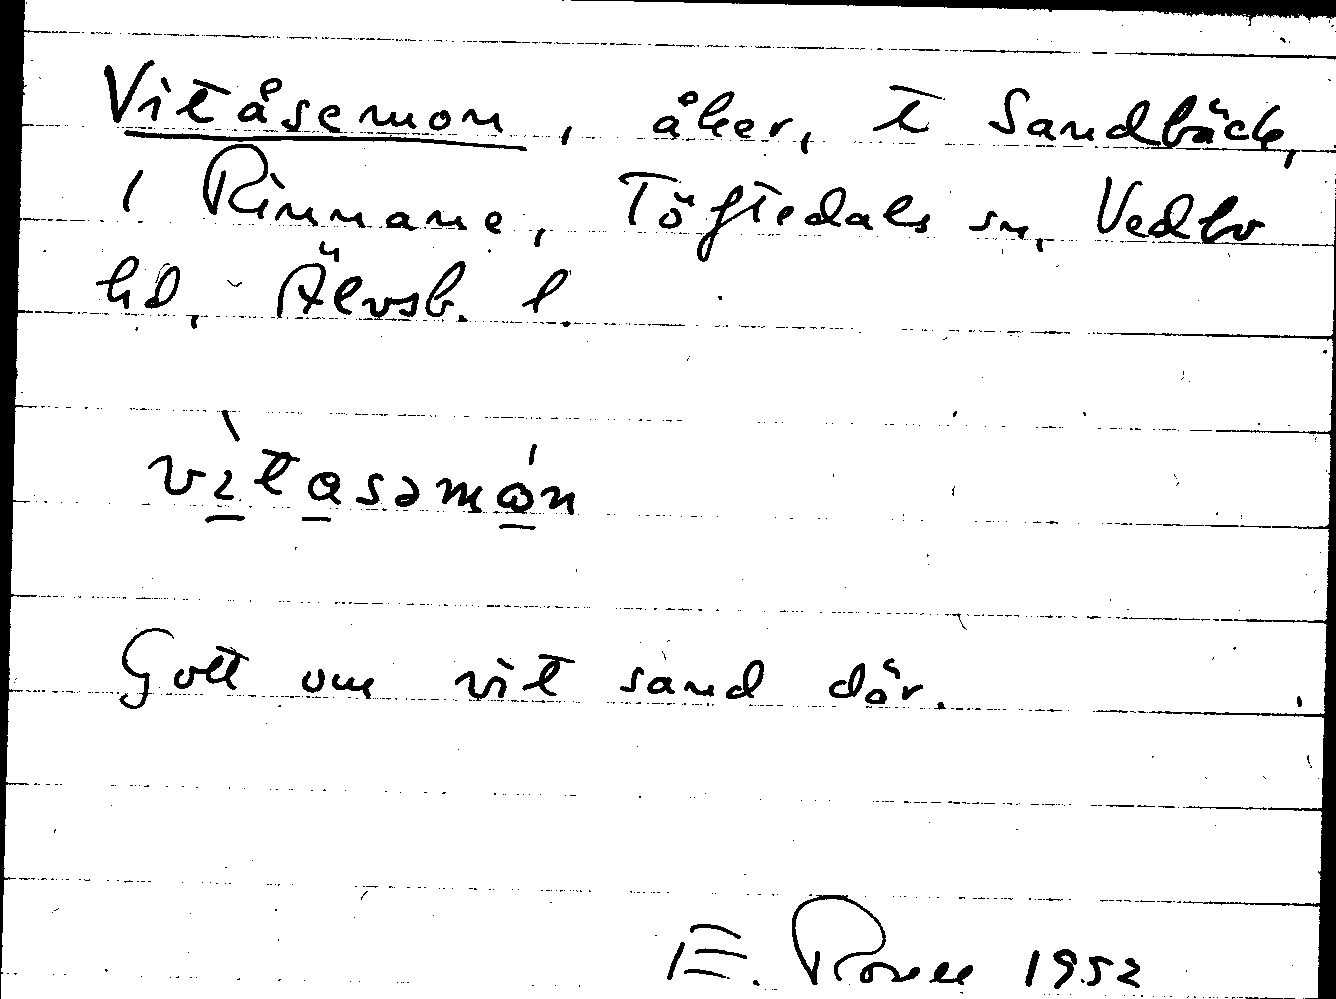 Vitåsemon, åker, t Sandbäck,
i Rinnane, Töftedals sn, Vedbo
hd, Älvsb. l.
vìtasəmón
Gott om vit sand där.
E. Rosell 1952